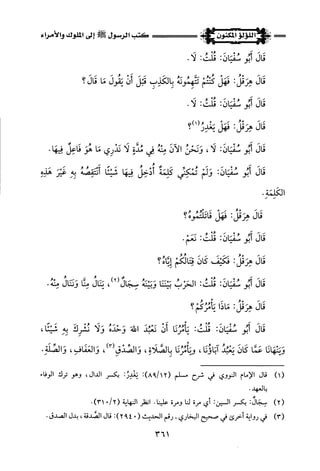 اللؤلؤ المكنون
كتب الرسول ﷺ إلى الملوك والأمراء
قَالَ أَبُو سُفْيَانَ: قُلْتُ: لَا.
قَالَ هِرَقْلُ: فَهَلْ كُنْتُمْ تَتَّهِمُونَهُ بِالكَذِبِ قَبْلَ أَنْ يَقُولَ مَا قَالَ؟
قَالَ أَبُو سُفْيَانَ: قُلْتُ: لَا.
قَالَ هِرَقْلُ: فَهَلْ يَغْدِرُ(١)؟
قَالَ أَبُو سُفْيَانَ: قُلْتُ: لَا، وَنَحْنُ الآنَ مِنْهُ فِي مُدَّةٍ لَا نَدْرِي مَا هُوَ فَاعِلٌ فِيهَا.
قَالَ أَبُو سُفْيَانَ: وَلَمْ تُمْكِنِّي كَلِمَةٌ أُدْخِلُ فِيهَا شَيْئًا أَنْتَقِصُهُ بِهِ غَيْرَ هَذِهِ
الكَلِمَةِ.
قَالَ هِرَقْلُ: فَهَلْ قَاتَلْتُمُوهُ؟
قَالَ أَبُو سُفْيَانَ: قُلْتُ: نَعَمْ.
قَالَ هِرَقْلُ: فَكَيْفَ كَانَ قِتَالُكُمْ إِيَّاهُ؟
قَالَ أَبُو سُفْيَانَ: قُلْتُ: الحَرْبُ بَيْنَنَا وَبَيْنَهُ سِجَالٌ(٢)، يَنَالُ مِنَّا وَنَنَالُ مِنْهُ.
قَالَ هِرَقْلُ: مَاذَا يَأْمُرُكُمْ؟
قَالَ أَبُو سُفْيَانَ: قُلْتُ: يَأْمُرُنَا أَنْ نَعْبُدَ اللهَ وَحْدَهُ وَلَا نُشْرِكُ بِهِ شَيْئًا،
وَيَنْهَانَا عَمَّا كَانَ يَعْبُدُ آبَاؤُنَا، وَيَأْمُرُنَا بِالصَّلَاةِ، وَالصِّدْقِ(٣)، وَالعَفَافِ، وَالصِّلَةِ.
(١) قال الإمام النووي في شرح مسلم (٨٩/١٢): يَغْدِرُ: بكسر الدال، وهو ترك الوفاء
بالعهد.
(٢) سِجَالٌ: بكسر السين: أي مرة لنا ومرة علينا. انظر النهاية (٣١٠/٢).
(٣) في رواية أخرى في صحيح البخاري - رقم الحديث (٢٩٤٠): قال الصدقة، بدل الصدق.
٣٦١